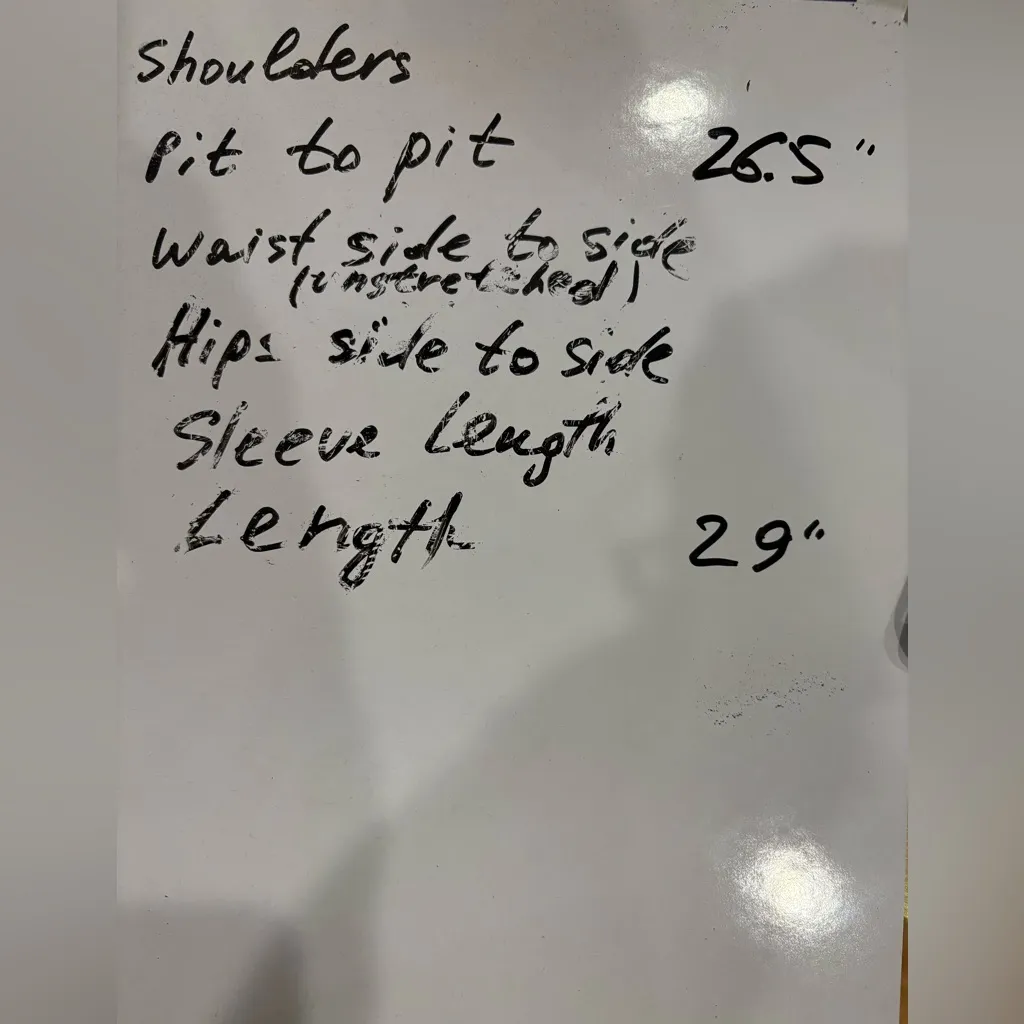 Shoulders
Pit to pit 26.5"
Waist side to side
(unstretched)
Hips side to side
Sleeve Length
Length 29"